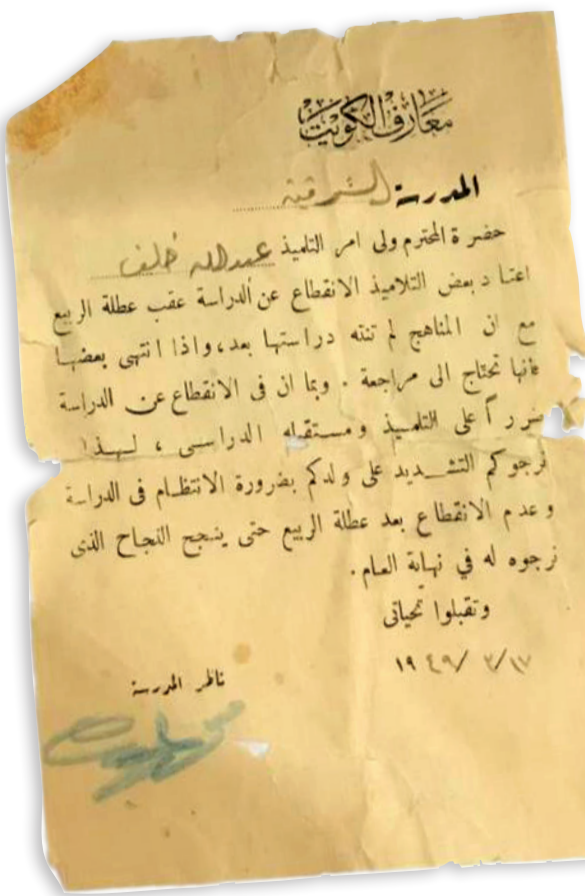 معارف الكويت
المدرسة الشرقية
حضرة المحترم ولى امر التلميذ عبدالله خلف
اعتاد بعض التلاميذ الانقطاع عن الدراسة عقب عطلة الربيع
مع ان المناهج لم تنته دراستها بعد، واذا انتهى بعضها
فانها تحتاج الى مراجعة . وبما ان فى الانقطاع عن الدراسة
ضرراً على التلميذ ومستقبله الدراسى ، لهذا
نرجوكم التشديد على ولدكم بضرورة الانتظام فى الدراسة
وعدم الانقطاع بعد عطلة الربيع حتى ينجح النجاح الذى
نرجوه له في نهاية العام .
وتقبلوا تحياتى
١٧/٣/١٩٤٩
ناظر المدرسة